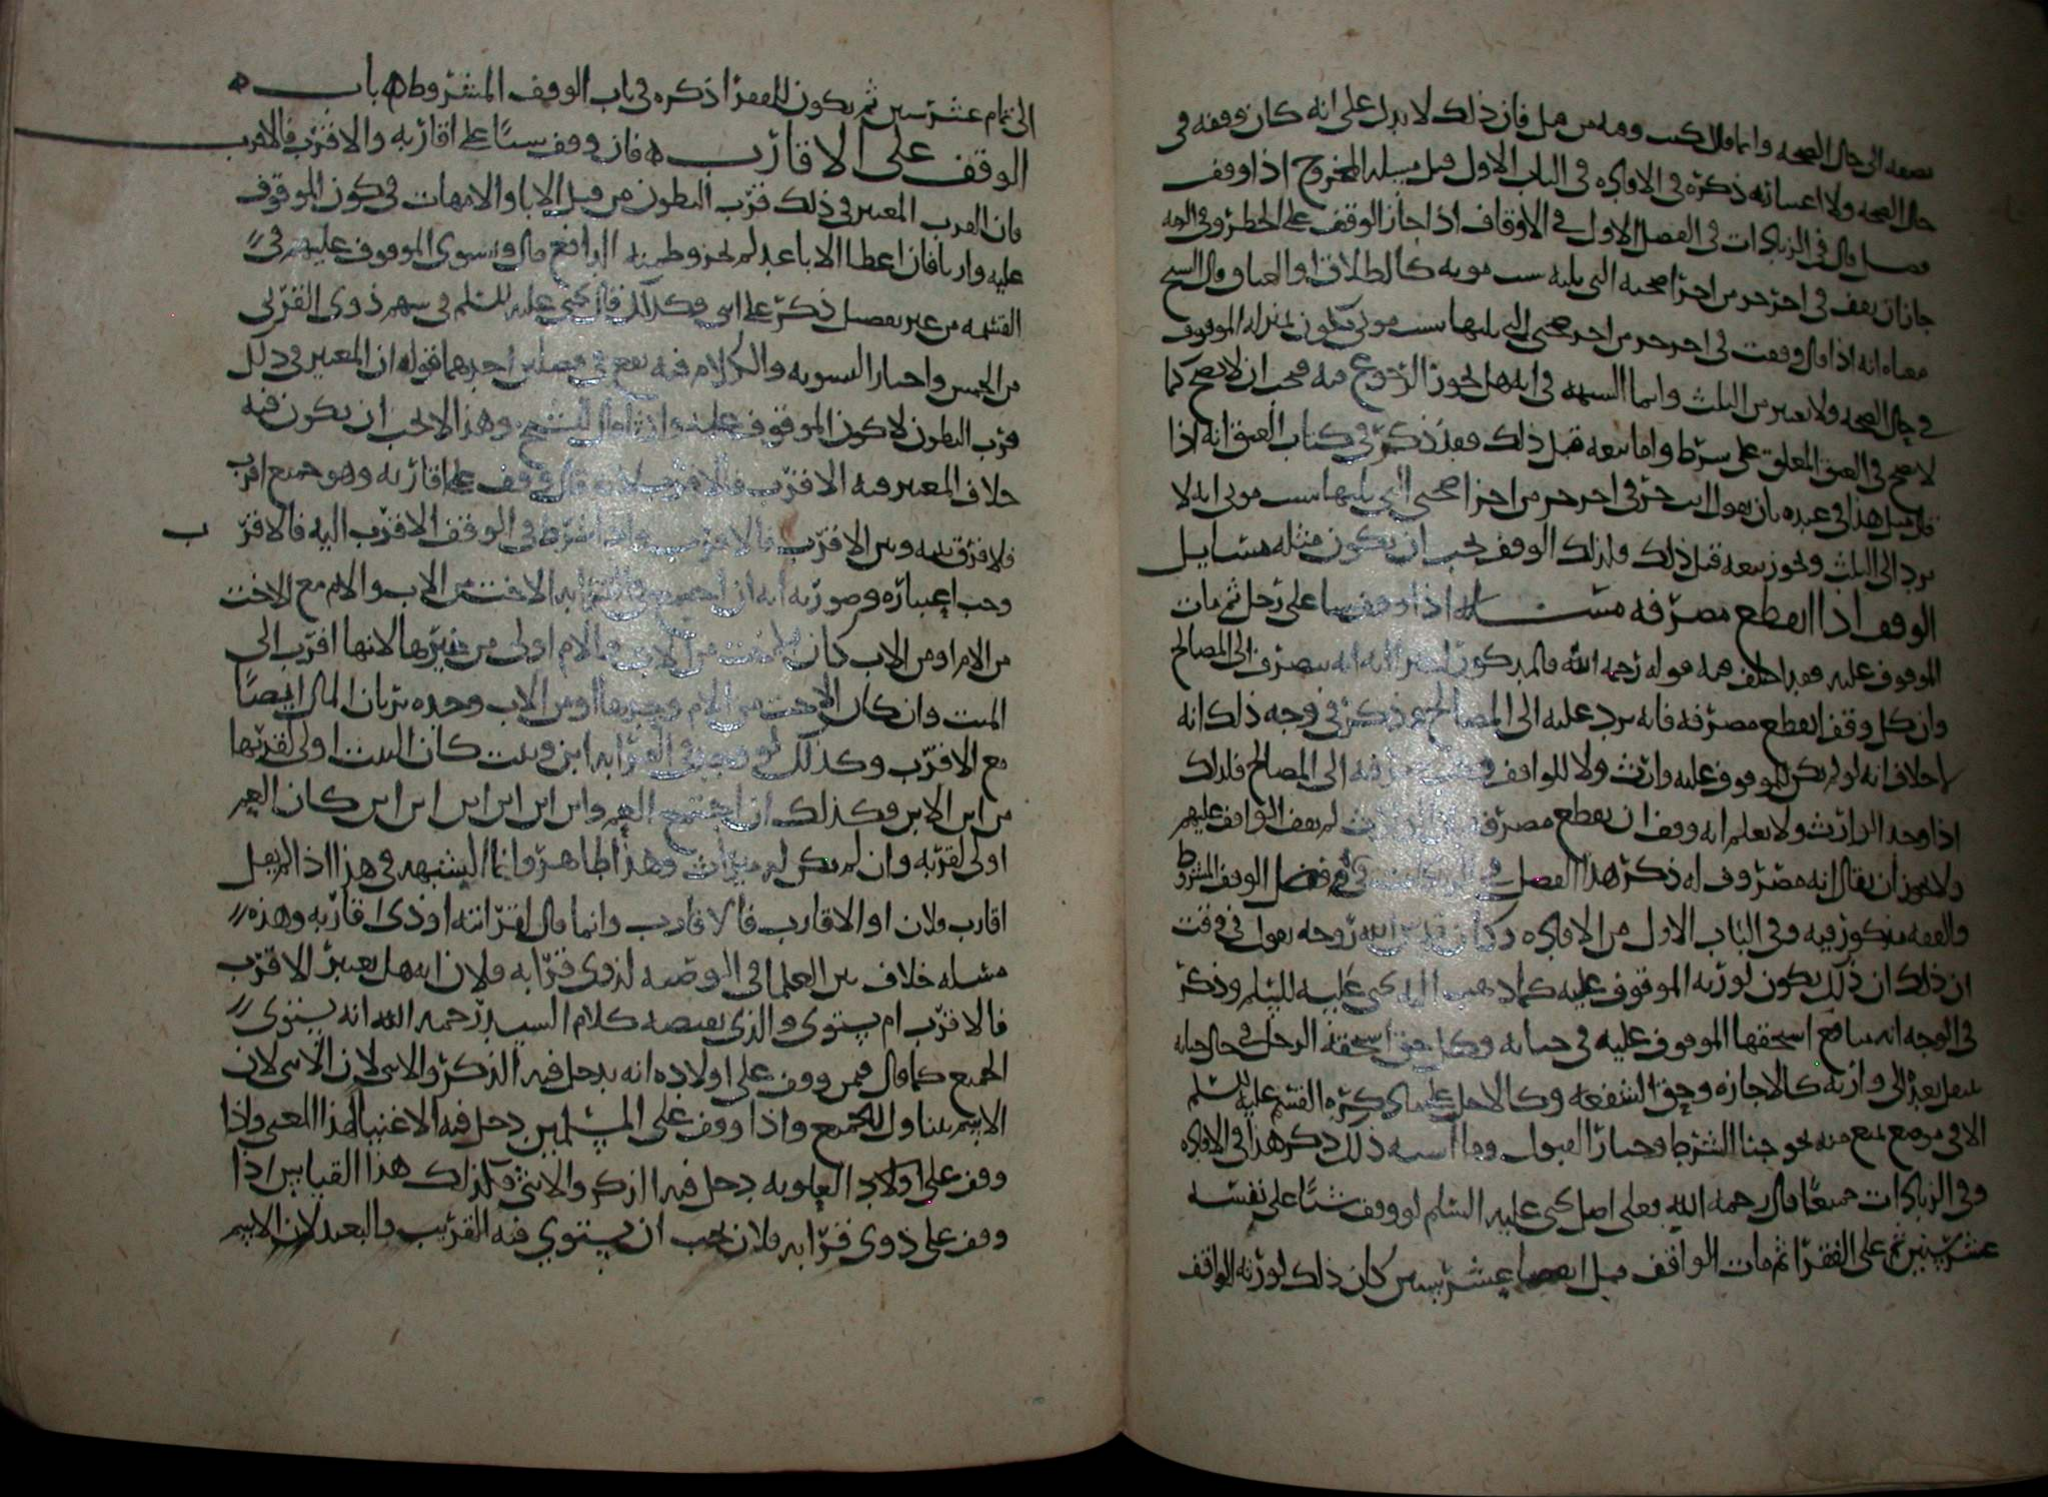 نصفه الى حال الصحه وانما قال كتب ومه من قبل فان ذلك لا يدل على انه كان وقفه في
حال الصحه ولا اعسانه ذكره في الافاده في الباب الاول قبل مسله المخروج اذا وقف
فصل قال في الزيادات في الفصل الاول في الاوقاف اذا جاز الوقف على الحظر وفي الصحه
جاز ان يقف في اخر جزء من اجزا صحته التي يليه سبب موته كالطلاق او العتاق وقال السيح
معناه انه اذا قال وقفت في اخر جزء من اجزا صحتي التي يليها سبب موتي يكون بمنزله الموقوف
في حال الصحه ولا يعتبر من الثلث وانما الشبهه في انه هل يجوز الرجوع فيه فيجب ان لا يصح كما
لا يصح في العتق المعلق على شرط واما بيعه قبل ذلك فقد ذكر في كتاب العتق انه اذا
قال مثل هذا في عبده بان يقول انت حر في اخر جزء من اجزا صحتي التي يليها سبب موتي انه لا
يرد الى الثلث ويجوز بيعه قبل ذلك وكذلك الوقف يجب ان يكون مثله مسايل
الوقف اذا انقطع مصرفه مسله اذا وقف شيا على رجل ثم مات
الموقوف عليه فقد اختلف فيه قوله رحمه الله فالمذكور في التحرير انه يصرف الى المصالح
وان كل وقف انقطع مصرفه فانه يرد عليه الى المصالح وذكر في وجه ذلك انه
لا خلاف انه لو لم يكن للموقوف عليه وارث ولا للواقف صرفه الى المصالح فكذلك
اذا وجد الوارث ولا يعلم انه وقف ان يقطع مصرفه لم يقف الواقف عليهم
ولا يجوز ان يقال انه مصروف له ذكر هذا الفصل في فصل الوقف المشروط
والفقه مذكور فيه وفي الباب الاول من الافاده وكان قدس الله روحه يقول في وقت
ان ذلك ان ذلك يكون لورثه الموقوف عليه كما ذهب اليه يحيى عليه السلم وذكر
في الوجه انه منافع استحقها الموقوف عليه في حياته وكل حق استحقه الرجل في حال حياته
ينتقل بعده الى وارثه كالاجازه وحق الشفعه وكالاجل على ما ذكره القسم عليه السلم
الا في موضع يمنع منه نحو خيار الشرط وخيار القبول وما اشبه ذلك ذكر هذا في الافاده
وفي الزيادات جميعا قال رحمه الله فعلى اصل يحيى عليه السلم لو وقف شيا على نفسه
عشر سنين ثم على الفقرا ثم مات الواقف قبل انقضا عشر سنين كان ذلك لورثه الواقف
الى تمام عشر سنين ثم يكون للفقرا ذكره في باب الوقف المشروط ه باب ه
الوقف على الاقارب ه فان وقف شيا على اقاربه والاقرب فالاقرب
فان القرب المعتبر في ذلك قرب البطون من قبل الابا والامهات في كون الموقوف
عليه وارثا فان اعطا الاباعد لم يجز وطميه الرافع قال ويسوى الموقوف عليهم في
القسمه من غير تفصيل ذكر على انثى وكذلك قال يحيى عليه السلم في سهم ذوى القربى
من الخمس واختار التسويه والكلام فيه يقع في فصلين احدهما قوله ان المعتبر في ذلك
قرب البطون لا كون الموقوف عليه وارثا قال الشيخ وهذا لا يجب ان يكون فيه
خلاف المعتبر فيه الاقرب فالاقرب لانه قال وقف على اقاربه وهو جميع اقرب
فلا فرق بينه وبين الاقرب فالاقرب واذا شرط في الوقف الاقرب اليه فالاقرب
وجب اعتباره وصورته انه ان اجتمع في القرابه الاخت من الاب والام مع الاخت
من الام او من الاب كان الاخت من الاب والام اولى من غيرها لانها اقرب الى
الميت وان كان الاخت من الام وحدها او من الاب وحده يرثان المال ايضا
مع الاقرب وكذلك لو وجد في القرابه ابن وبنت كان البنت اولى لقربها
من ابن الابن وكذلك ان اجتمع العم وابن ابن ابن ابن ابن كان العم
اولى لقربه وان لم يكن له ميراث وهذا ظاهر وانما الشبهه في هذا اذا لم يقل
اقارب فلان او الاقارب فالاقارب وانما قال لقرابته او ذى اقاربه وهذه
مسله خلاف بين العلما في الوصيه لذوى قرابه فلان انه هل يعتبر الاقرب
فالاقرب ام يستوى والذى يقتضيه كلام السيد رحمه الله انه يستوى
الجميع كما قال فيمن وقف على اولاده انه يدخل فيه الذكر والانثى لان الاسم لان
الاسم يتناول الجميع واذا وقف على المسلمين دخل فيه الاغنيا لهذا المعنى واذا
وقف على اولاد العلويه دخل فيه الذكر والانثى فكذلك هذا القياس اذا
وقف على ذوى قرابه فلان يجب ان يستوى فيه القريب والبعيد لان الاسم